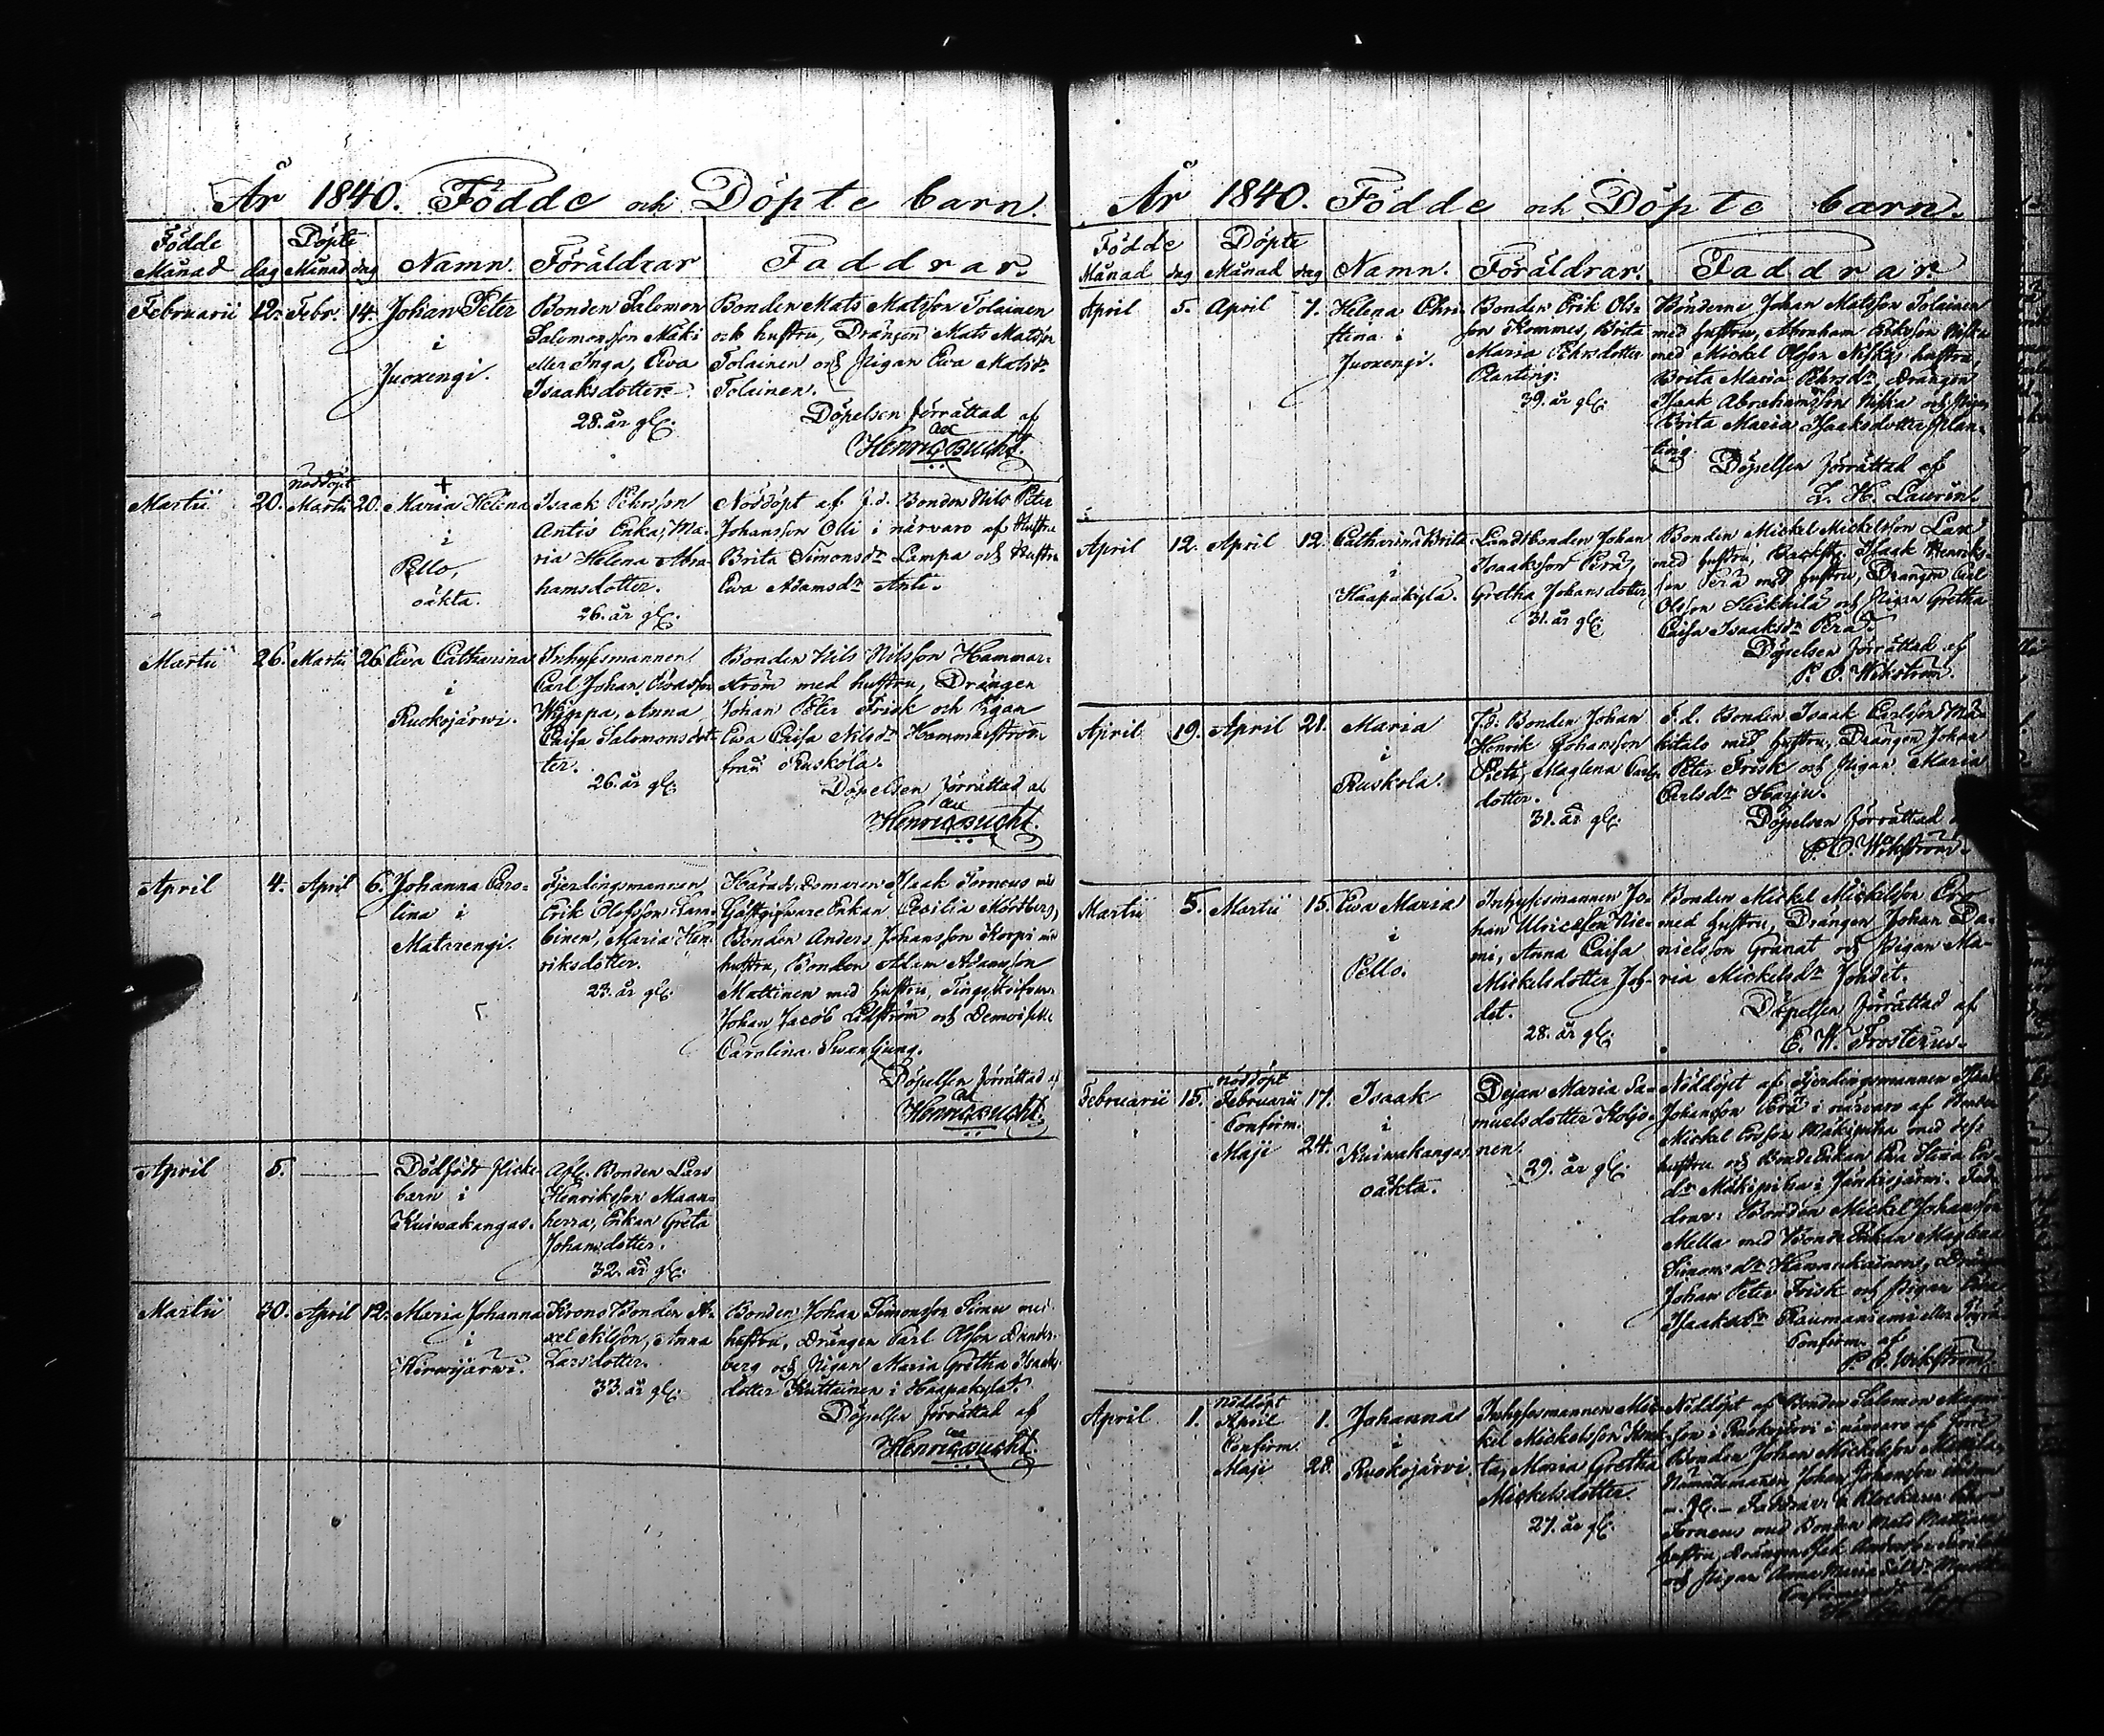 År 1840. Födde och Döpte barn.
Födde Månad dag Döpte Månad dag Namn. Föräldrar Faddrar.
Februarii 12. Febr. 14. Johan Peter
i
Juoxengi.
Bonden Salomon
Salomonsson Mäki
eller Inga, Ewa
Isaaksdotter.
28. år gl.
Bonden Mats Matsson Tolainen
och hustru, Drängen Mats Matsson
Tolainen och Pigan Ewa Matsdr
Tolainen.
Döpelsen förrättad af
Henric Bucht.
Martii 20. nöddöpt Martii 20. Maria Helena
i
Pello,
oäkta.
Isaak Pehrsson
Antis Enka, Ma-
ria Helena Abra-
hamsdotter.
26. år gl.
Nöddöpt af f.d. Bonden Nils Peter
Johansson Olli i närvaro af Hustru
Brita Simonsdr Lampa och Hustru
Ewa Adamsdr Anti.
Martii 26. Martii 26. Ewa Catharina
i
Ruskojärwi.
Inhysesmannen
Carl Johan
Wippa, Anna
Caisa Salomonsdot-
ter.
26. år gl.
Bonden Nils Nilsson Hammar-
ström med hustru, Drängen
Johan Peter Frisk och Pigan
Ewa Caisa Nilsdr Hammarström
från Ruskola.
Döpelsen förrättad af
Henric Bucht.
April 4. April 6. Johanna Caro-
lina i
Matarengi.
Fjerdingsmannen
Erik Olofsson Lam-
binen, Maria Hen-
riksdotter.
23. år gl.
Härads Domaren Isaak Torneus med
Gjästgifware Enkan Cecilia Mörtberg,
Bonden Anders Johansson Korpi med
hustru, Bonden Adam Adamsson
Mattinen med hustru,
Johan Jacob Lidström och Demoiselle
Carolina Swanljung.
Döpelsen förrättad af
Henric Bucht.
April 5. Dödfödt flicke-
barn i
Kuiwakangas.
Afl. Bonden Lars
Henriksson Maan-
herra, Enkan Greta
Johansdotter.
32. år gl.
Martii 30. April 12. Maria Johanna
i
Hirwijärwi.
Krono Bonden Ax-
xel Nilsson, Anna
Larsdotter.
33. år gl.
Bonden Johan Simonsson Simu med
hustru, Drängen Carl Olsson Dunder-
berg och Pigan Maria Gretha Isaaks-
dotter Kuttainen i Haapakylä.
Döpelsen förrättad af
Henric Bucht.
År 1840. Födde och Döpte barn.
Födde Månad dag Döpte Månad dag Namn. Föräldrar. Faddrar.
April 5. April 7. Helena Chri-
stina i
Juoxengi.
Bonden Erik Ols-
son Kommes, Brita
Maria Pehrsdotter
Planting.
39. år gl.
Bönderne Johan Matsson Tolainen
med hustru, Abraham Niska
med Mickel Olsson Niskas hustru,
Brita Maria Pehrsdr, Drängen
Isaak Abrahamsson Niska och Pigan
Brita Maria Isaaksdotter Plan-
ting.
Döpelsen förrättad af
L. H. Laurin.
April 12. April 12. Catharina Brita
i
Haapakylä.
Landtbonden Johan
Isaaksson Perä,
Gretha Johansdotter
31. år gl.
Bonden Mickel Mickelsson Lax
med hustru, Isaak Henriks-
son Perä med hustru, Drängen Carl
Olsson Heikkilä och Pigan Gretha
Caisa Isaaksdr Perä.
Döpelsen förrättad af
P. O. Wikström.
April 19. April 21. Maria
i
Ruskola.
f.d. Bonden Johan
Henrik Johansson
Pieti, Maglena Carls-
dotter.
31. år gl.
f.d. Bonden Isaak Carlsson Mä-
kitalo med hustru, Drängen Johan
Peter Frisk och Pigan Maria
Carlsdr Harju.
Döpelsen förrättad
P. O. Wikström.
Martii 5. Martii 15. Ewa Maria
i
Pello.
Inhysesmannen Jo-
han Ulricsson Nie-
mi, Anna Caisa
Mickelsdotter Joh-
det.
28. år gl.
Bonden Mickel Mickelsson
med hustru, Drängen Johan Da-
nielsson Granat och Pigan Ma-
ria Mickelsdr Johdet.
Döpelsen förrättad af
E. W. Frosterus.
Februarii 15. nöddöpt
Februarii 17.
Confirm.
Maji 24.
Isaak
i
Kuiwakangas
oäkta.
Dejan Maria Sa-
muelsdotter Koljo-
nen.
29. år gl.
Nöddöpt af Fjerdingsmannen Isaak
Johansson Perä i närvaro af Bonden
Mickel Ersson Mäkipitka med dess
hustru och BondeEnkan
Mäkipitka i Jänkisjärwi. Fad-
drar: Bonden Mickel Johansson
Mella med BondeEnkan Maglena
Simonsdr Hannukainen, Drängen
Johan Peter Frisk och Pigan
Isaaksdr Raumaniemi eller
Confirm. af
P. O. Wikström.
April 1. nöddöpt
April 1.
Confirm.
Maji 28.
Johanna
i
Ruskojärvi.
Inhysesmannen Mic-
kel Mickelsson
Maria Gretha
Mickelsdotter.
27. år gl.
Nöddöpt af Bonden Salomon
i Ruskojärvi i närvaro af
Bonden Johan Mickelsson
Nämndemannen Johan Johansson
Faddrar: Klockaren
Torneus med Bonden Mats Mattinens
hustru, Drängen Isak
och Pigan Anna Maria